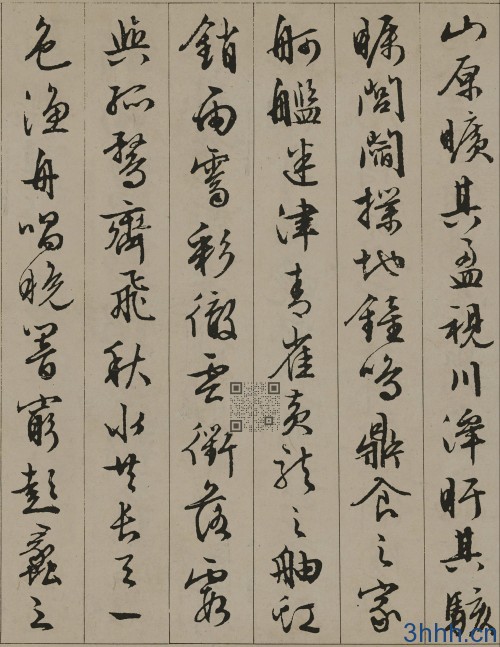 山原曠其盈視川澤盱其駭
矚閭閻撲地鐘鳴鼎食之家
舸艦迷津青雀黃龍之舳虹
銷雨霽彩徹雲衢落霞
與孤鶩齊飛秋水共長天一
色漁舟唱晚響窮彭蠡之
3hhh.cn